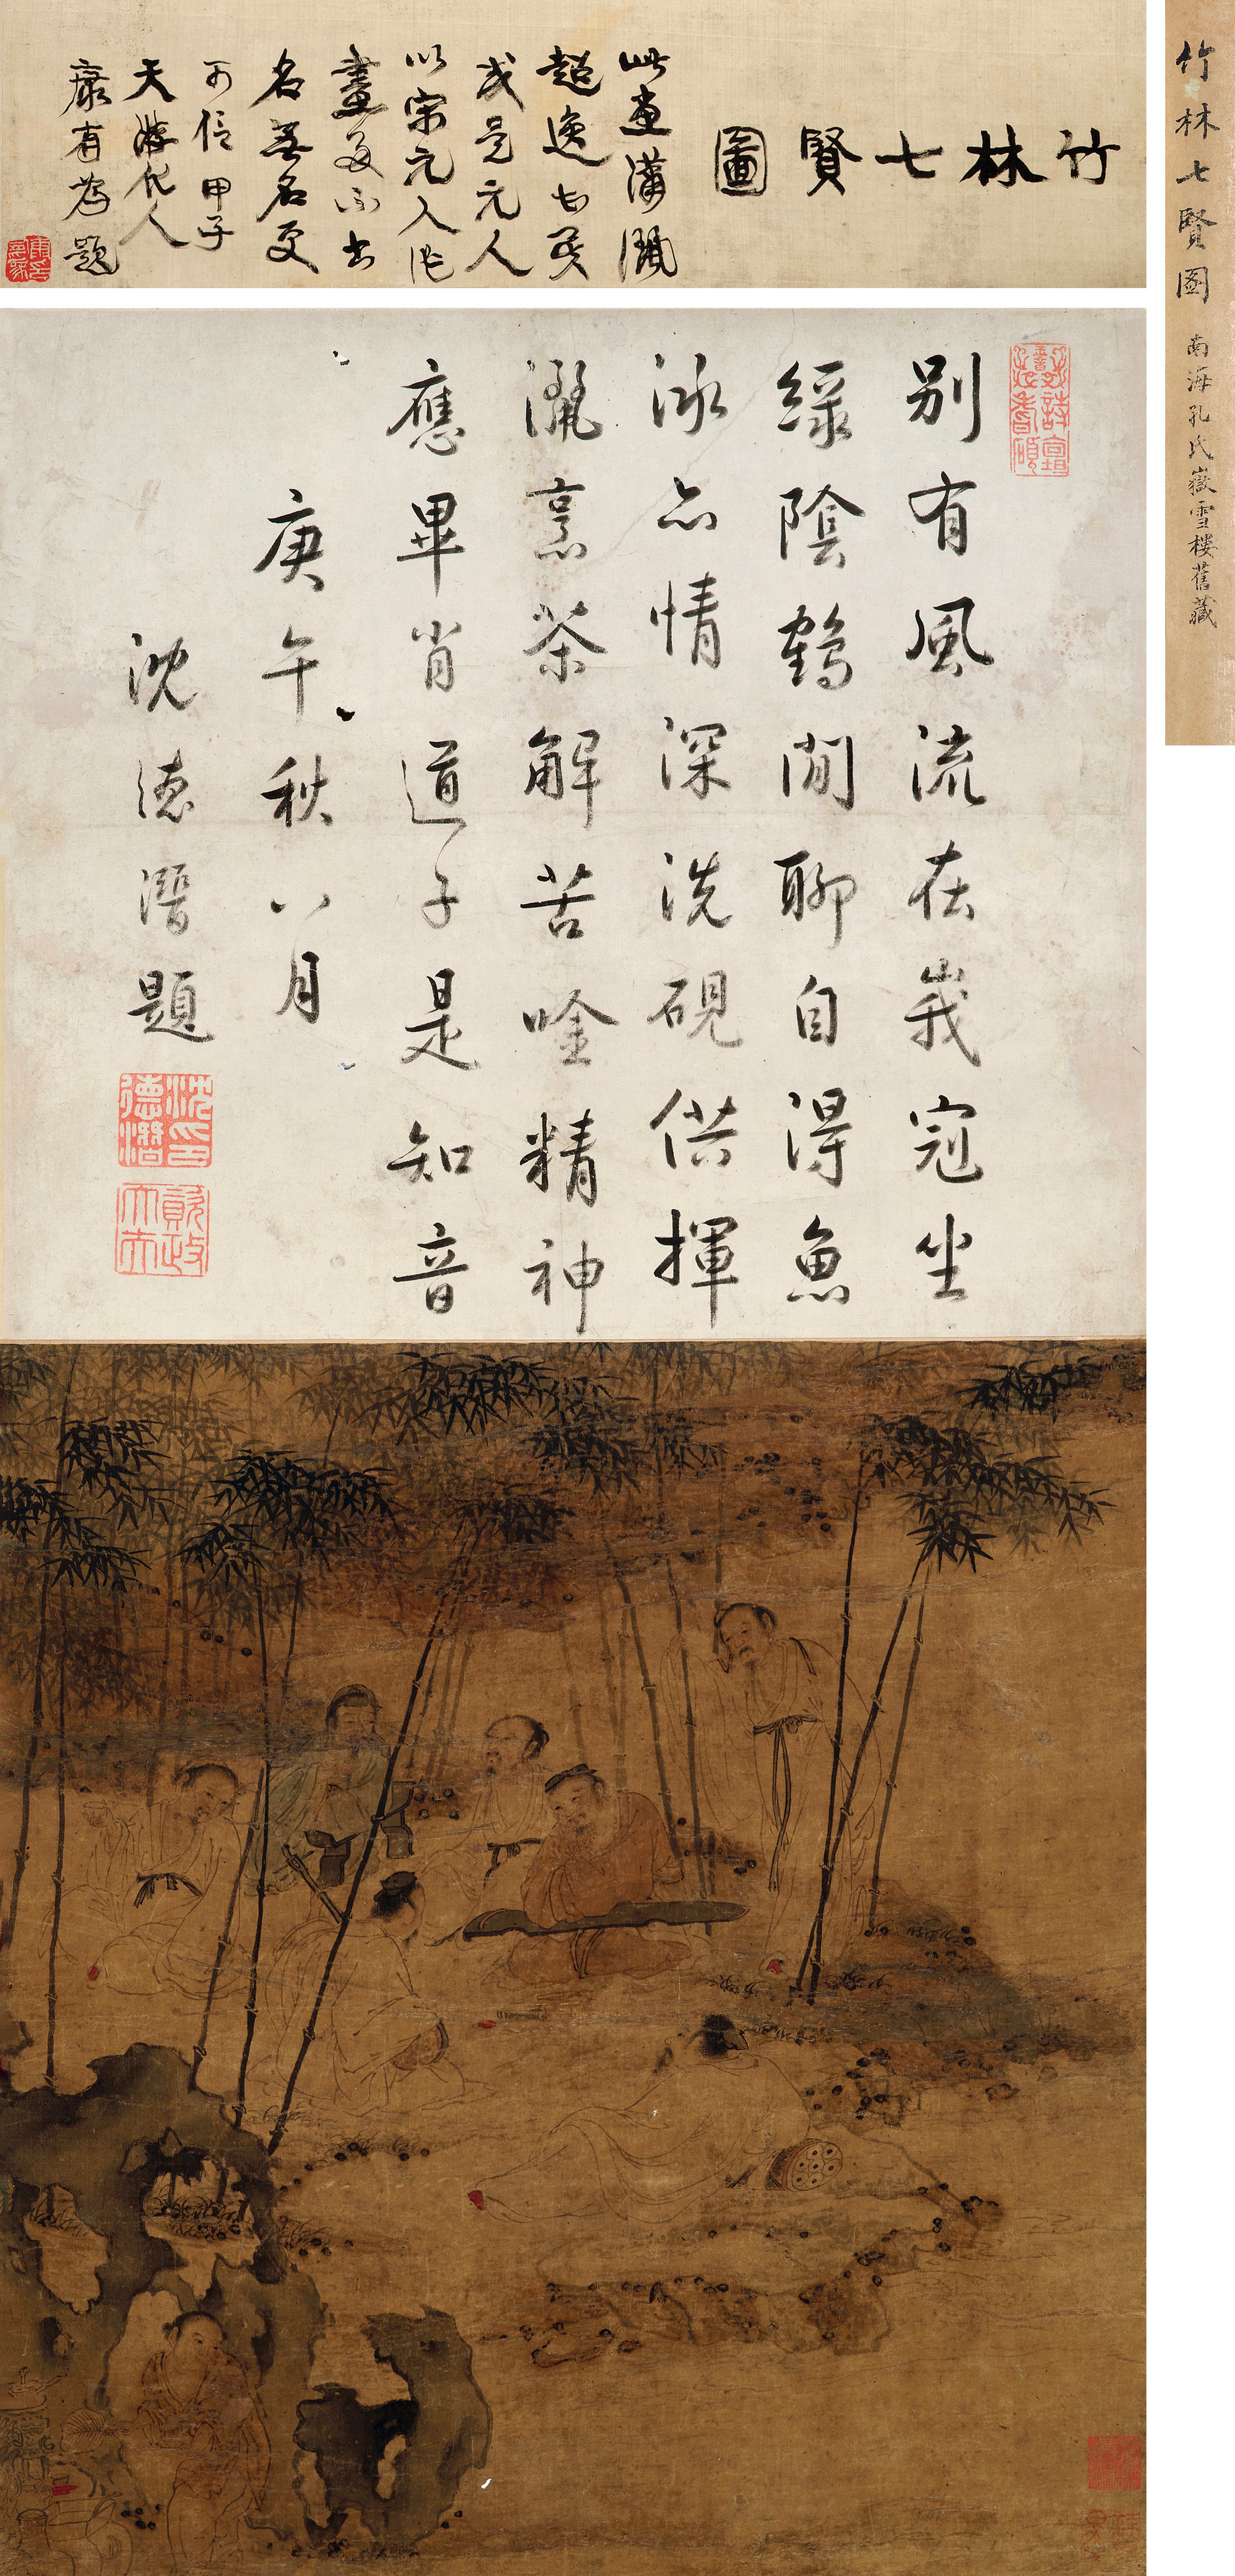 竹林七賢圖
南海孔氏嶽雪樓舊藏
竹林七賢圖
此畫瀟灑
超逸
或是元人
以宋元人作
畫多不書
名無名更
可信 甲子
天游化人
康有為題
別有風流在峩冠坐
綠陰鶴閒聊自得魚
泳亦情深洗硯供揮
灑烹茶解苦唫精神
應畢肖道子是知音
庚午秋八月
沈德潛題
沈德潛印